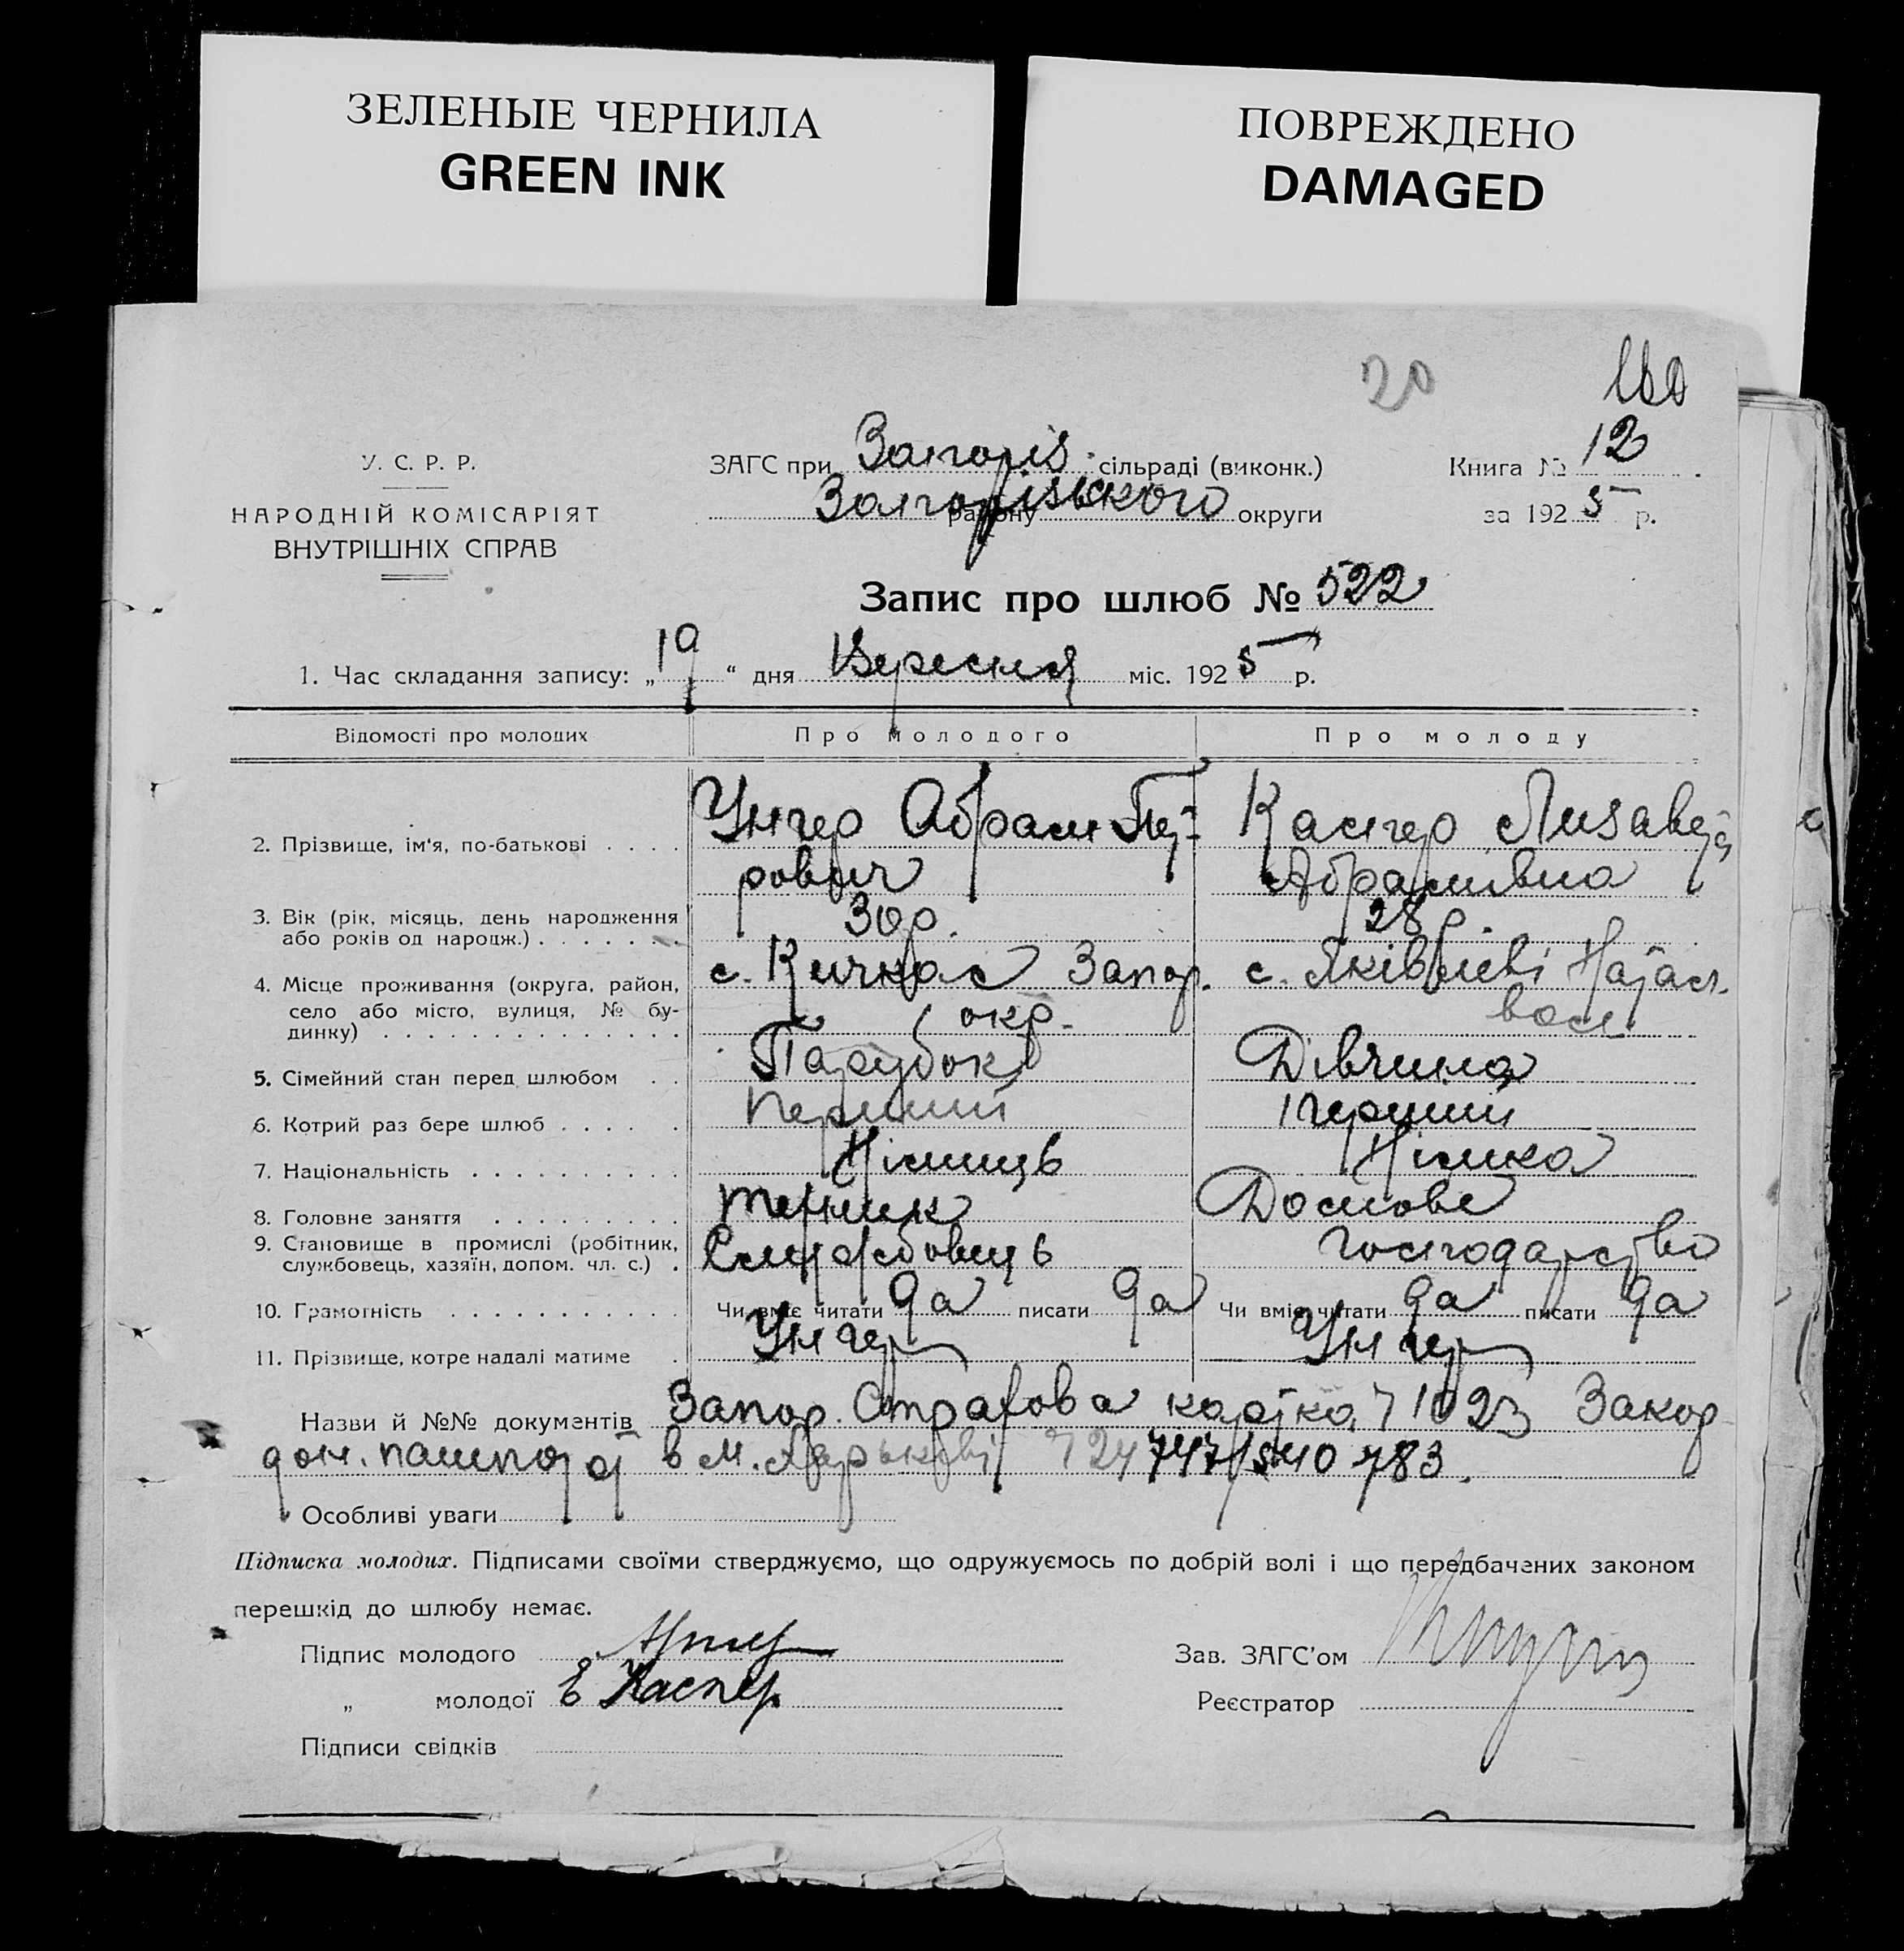 ЗЕЛЕНЫЕ ЧЕРНИЛА
GREEN INK
ПОВРЕЖДЕНО
DAMAGED
20
У. С. Р. Р.
НАРОДНІЙ КОМІСАРІЯТ
ВНУТРІШНІХ СПРАВ
ЗАГС при Запоріз. сільраді (виконк.)
Запорізького району округи
Книга № 12
за 1925 р.
Запис про шлюб № 522
1. Час складання запису: „19“ дня Вересня міс. 1925 р.
Відомості про молодих Про молодого Про молоду
2. Прізвище, ім'я, по-батькові Унгер Абрам Пет- Каспер Лизавета
рович Абрамівна
3. Вік (рік, місяць, день народження 30 р. 28 р.
або років од народж.)
4. Місце проживання (округа, район, с. Кичкас Запор. с. Яківлеві Натал.
село або місто, вулиця, № бу- окр. вол.
динку)
5. Сімейний стан перед шлюбом Парубок Дівчина
6. Котрий раз бере шлюб Перший Перший
7. Національність Німець Німка
8. Головне заняття технік Домове
9. Становище в промислі (робітник, Службовець господарство
службовець, хазяїн, допом. чл. с.)
10. Грамотність Чи вміє читати да писати да Чи вміє читати да писати да
11. Прізвище, котре надалі матиме Унгер Унгер
Назви й №№ документів Запор. Страхова картка 71023 Закор
дон. пашпорт в м. Харькові
Особливі уваги
Підписка молодих. Підписами своїми стверджуємо, що одружуємось по добрій волі і що передбачених законом
перешкід до шлюбу немає.
Підпис молодого
„ молодої Е Каспер
Підписи свідків
Зав. ЗАГС'ом
Реєстратор